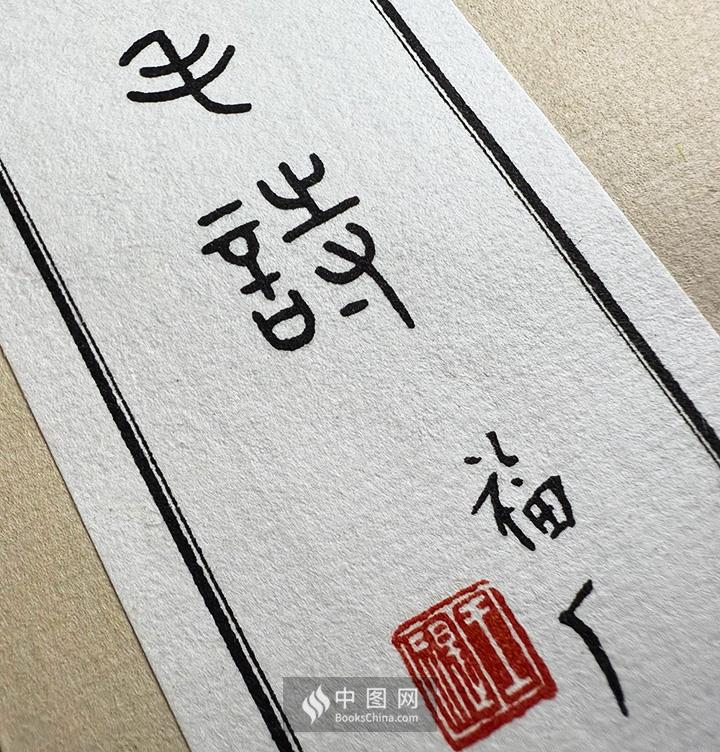 毛詩
福厂
王禔
中图网
BooksChina.com